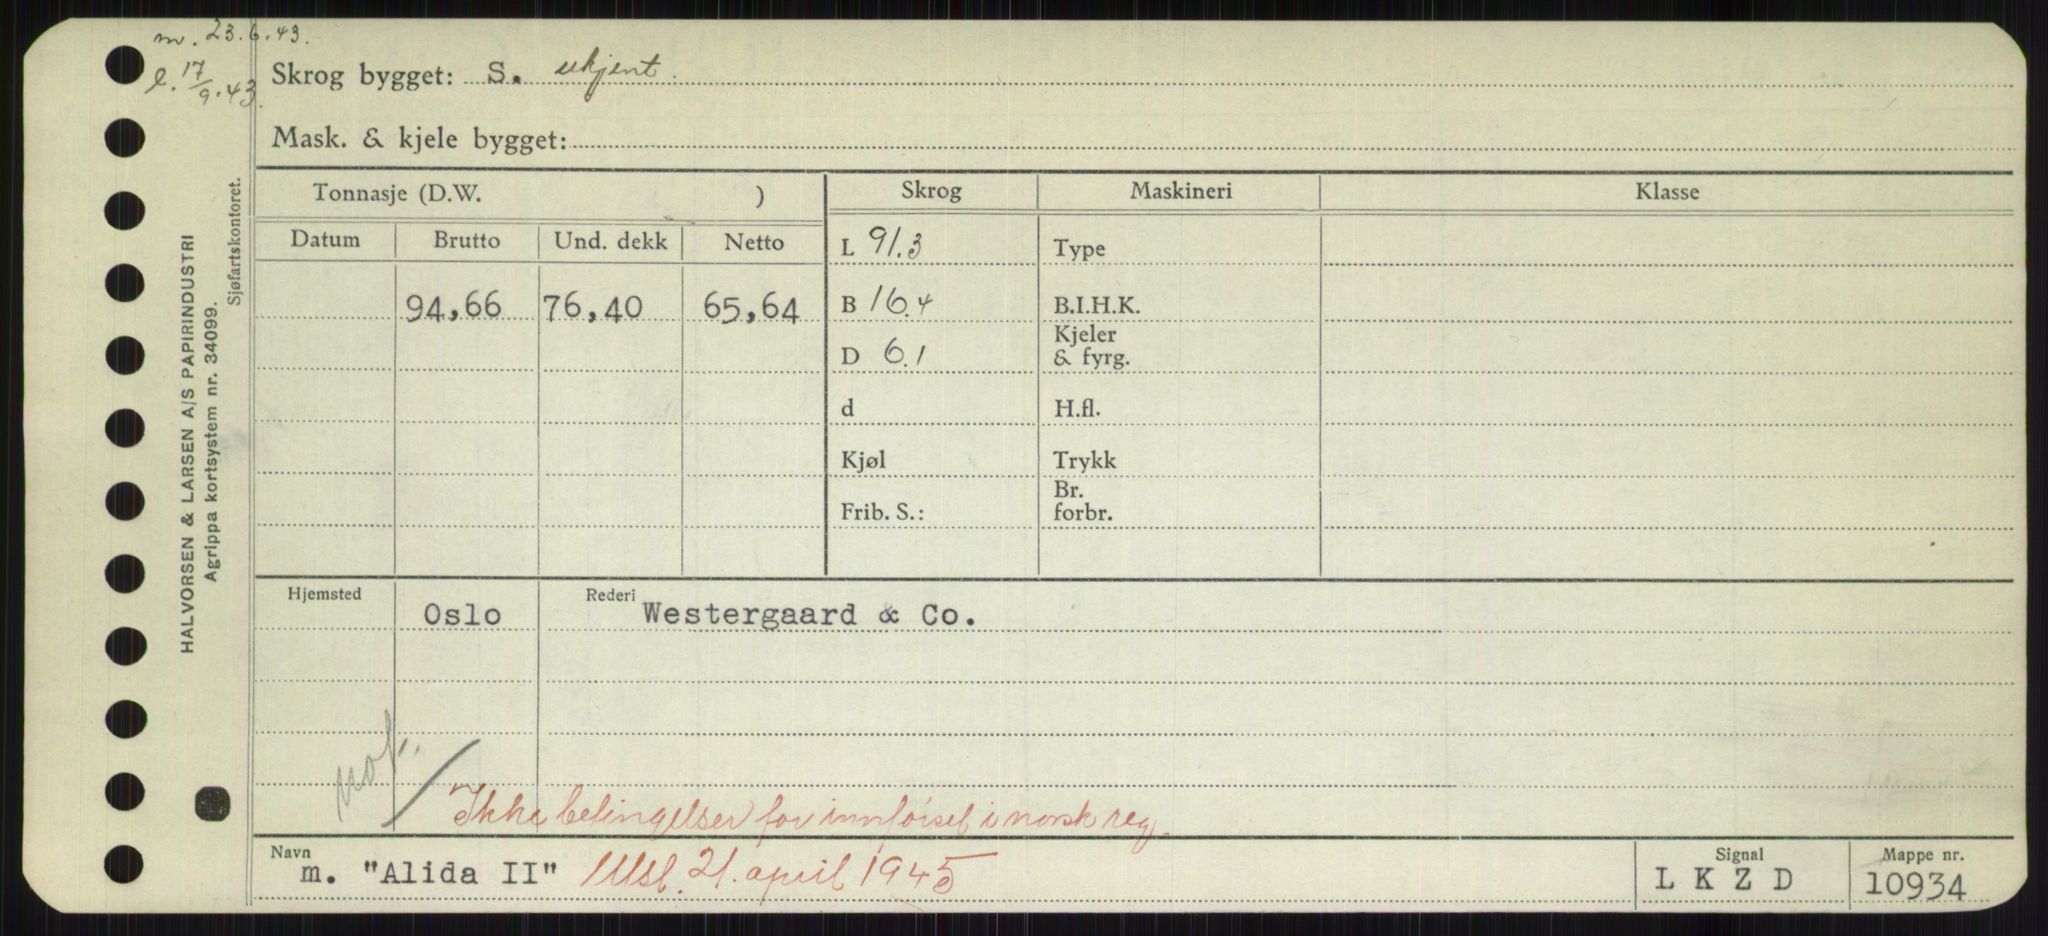 m. 23.6.43.
l. 17/9.43.
Skrog bygget: S. ukjent.
Mask. & kjele bygget:
HALVORSEN & LARSEN A/S PAPIRINDUSTRI
Agrippa kortsystem nr. 34099.
Sjøfartskontoret.
Tonnasje (D.W. ) Skrog Maskineri Klasse
Datum Brutto Und. dekk Netto L 91.3 Type
94,66 76,40 65,64 B 16.4 B.I.H.K.
D 6.1 Kjeler & fyrg.
d H.fl.
Kjøl Trykk
Frib. S.: Br. forbr.
Hjemsted Oslo Rederi Westergaard & Co.
Ikke betingelser for innførsel i norsk reg.
Navn m. "Alida II" Utsl. 21. april 1945 Signal L K Z D Mappe nr. 10934